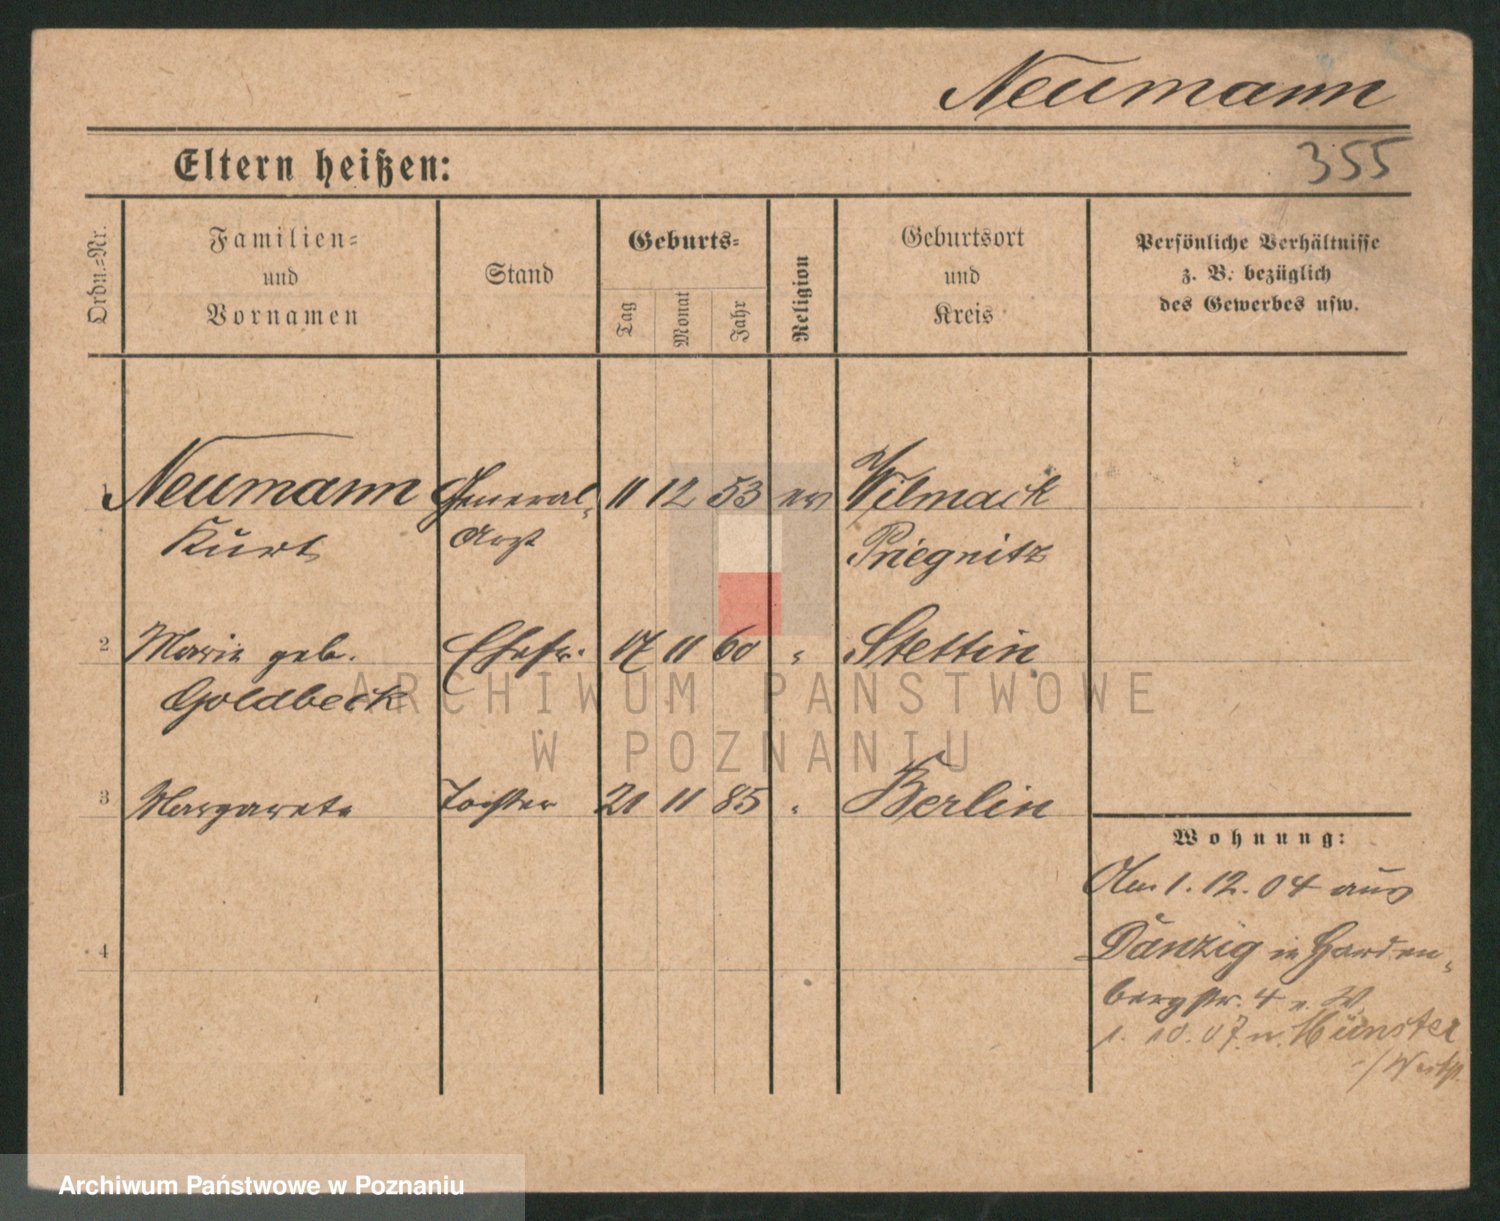 Neumann
Eltern heißen:
355
Ordn.-Nr.
Familien-
und
Vornamen
Stand
Geburts-
Tag
Monat
Jahr
Religion
Geburtsort
und
Kreis
Persönliche Verhältnisse
z. B. bezüglich
des Gewerbes usw.
1 Neumann General- 11 12 53 ev Wilmack
Kurt Arzt Priegnitz
2 Marie geb. Ehefr. 17 11 60 " Stettin
Goldbeck
3 Margarete Tochter 21 11 85 " Berlin
Wohnung:
Am 1. 12. 04 aus
Danzig in Harden-
bergstr. 4
1. 10. 07. n. Münster
4
i/ Westf.
ARCHIWUM PAŃSTWOWE
W POZNANIU
Archiwum Państwowe w Poznaniu